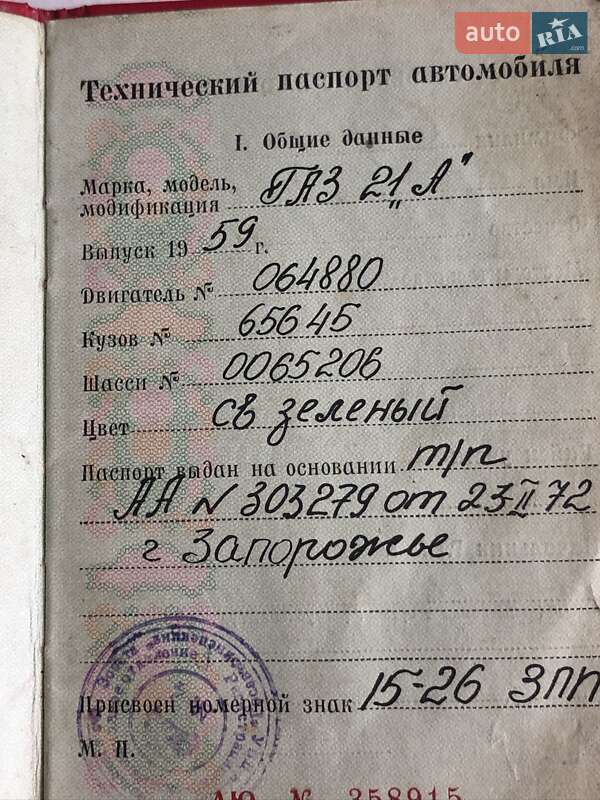 auto RIA .com
Технический паспорт автомобиля
I. Общие данные
Марка, модель,
модификация ГАЗ 21 „А"
Выпуск 19 59 г.
Двигатель № 064880
Кузов № 65645
Шасси № 0065206
Цвет св зеленый
Паспорт выдан на основании т/п
АА N 303279 от 23-II 72
г Запорожье
Присвоен номерной знак 15-26 ЗПП
М. П.
№ 358915